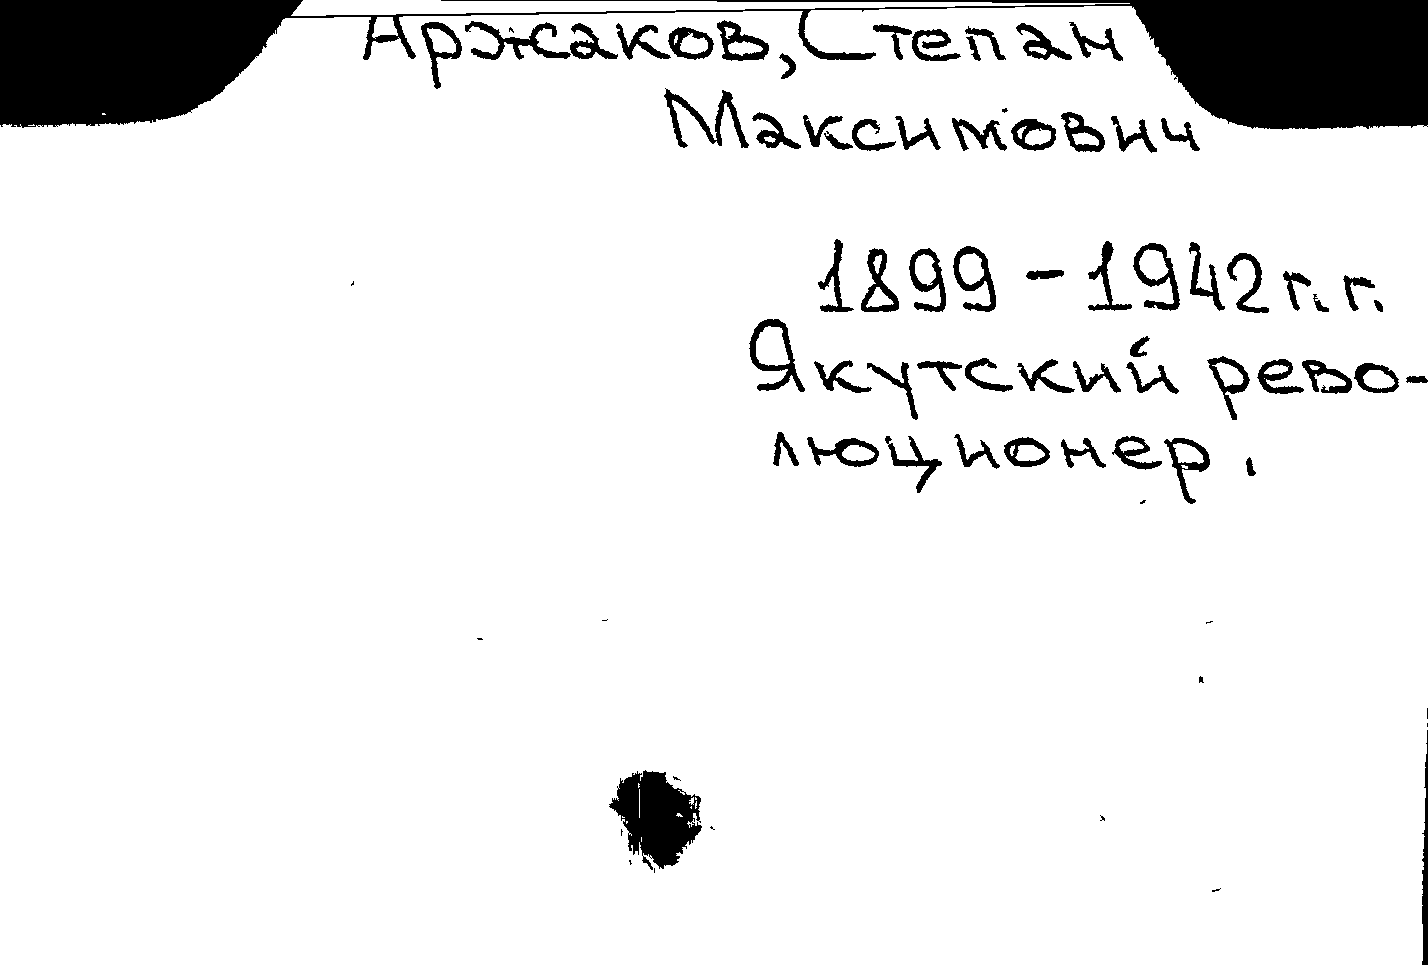 Аржаков, Степан
Максимович
1899 - 1942 г.г.
Якутский рево-
люционер.